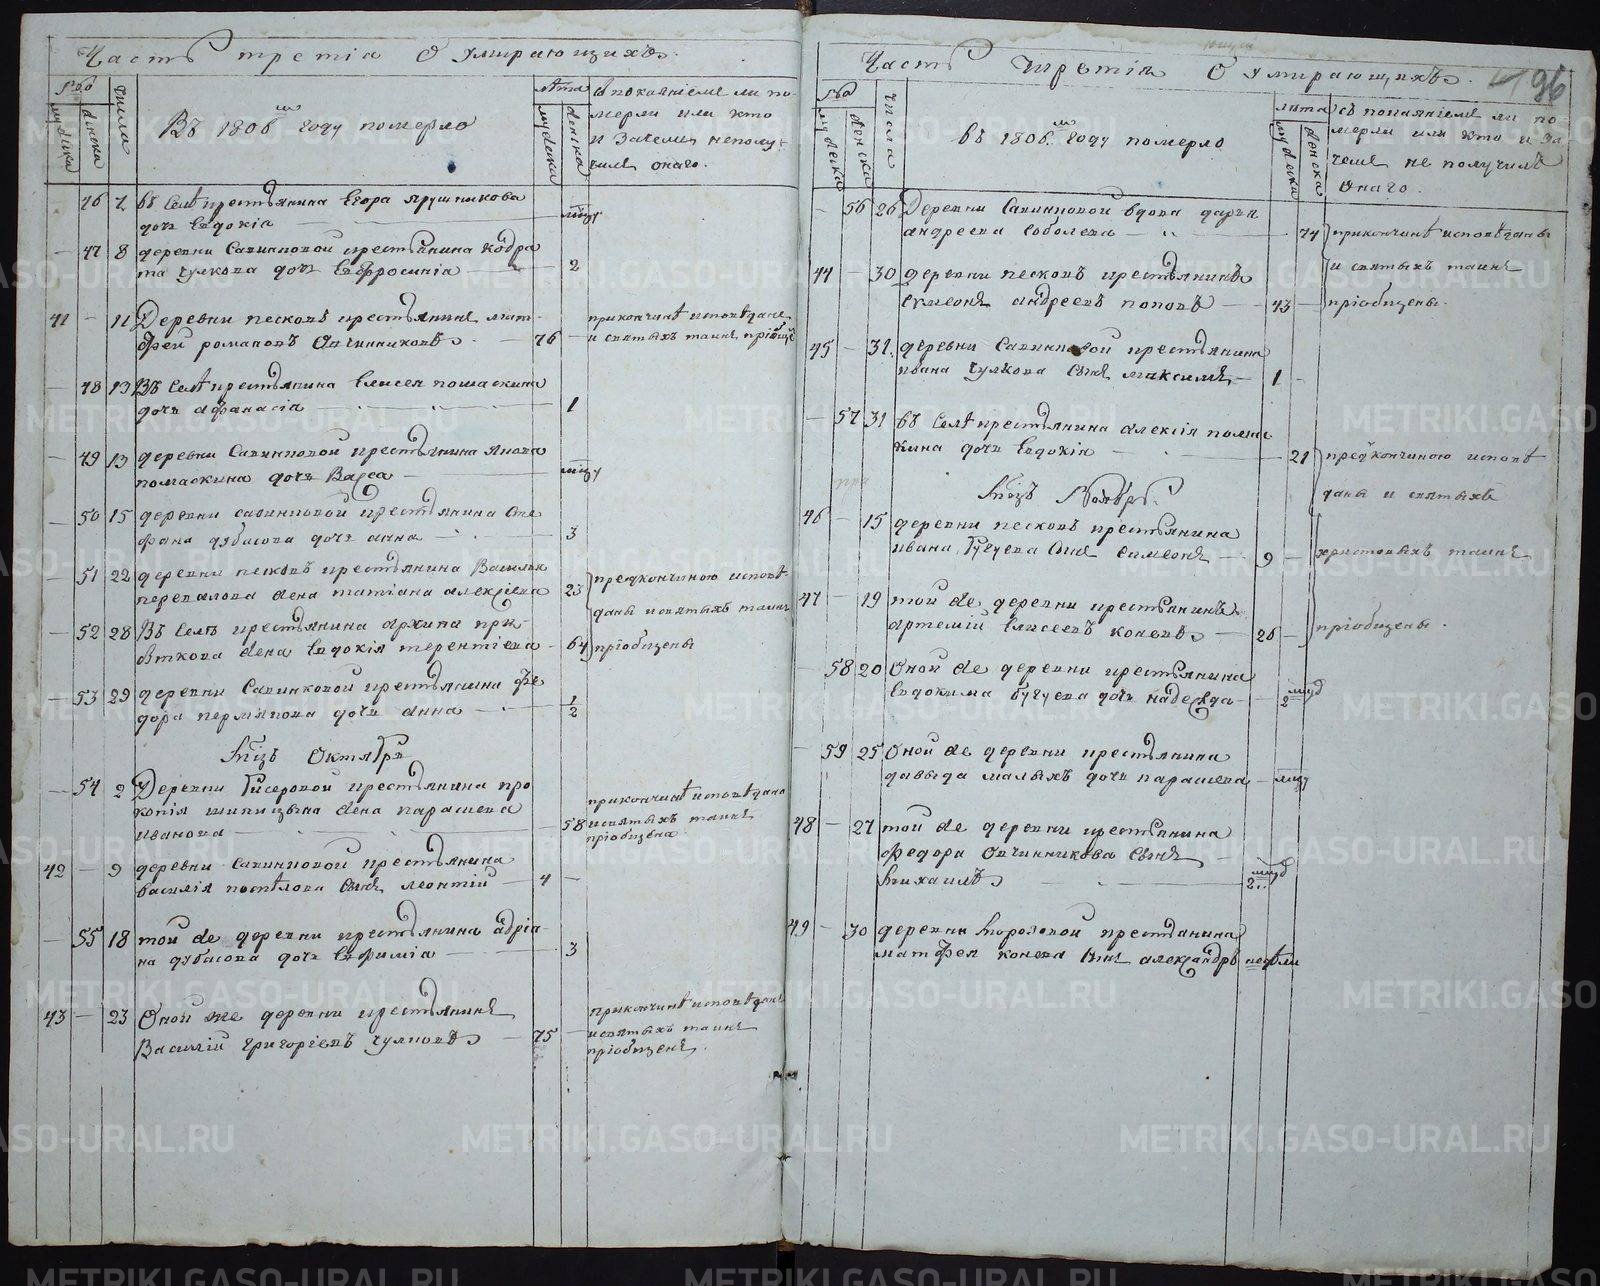 Часть третiя О умирающихъ.
Числа
мужска
женска
Въ 1806 году померло
лѣта
мужска
женска
съ покаянiемъ ли по-
мерли или кто
и зачемъ неполу-
чилъ онаго.
46 7 въ селѣ крестьянина Егора
дочь Евдокiя
47 8 деревни Савинковой крестьянина Кодра
та Чулкова дочь Евфросинiя 2
41 - 11 Деревни Песковъ крестьянинъ Мат-
фей Романовъ Овчинниковъ 76
прикончинѣ исповѣданъ
и святыхъ таинъ прiобщенъ
48 13 Въ селѣ крестьянина Елисея
дочь Афанасiя 1
49 13 деревни Савинковой крестьянина Якова
дочь Васса
50 15 деревни Савинковой крестьянина Сте
фана Дубасова дочь Анна 3
51 22 деревни Песковъ крестьянина Василья
Перевалова жена Татiана Алексiева 23
предкончиною исповѣ-
даны исвятыхъ таинъ
52 28 Въ Селѣ крестьянина Архипа
жена Евдокiя Терентiева 64
прiобщены
53 29 деревни Савинковой крестьянина Фе
дора Пермякова дочь Анна 1/2
Мцъ Октябрь
54 2 Деревни крестьянина Про
копiя Шипицына жена Парасковья
Иванова 58
прикончинѣ исповѣдана
исвятыхъ таинъ
прiобщена
42 - 9 деревни Савинковой крестьянина
Василiя Поспѣлова сынъ Леонтiй 4 -
55 18 той же деревни крестьянина Адрiа-
на Дубасова дочь Евфимiа 3
43 - 23 Оной же деревни крестьянинъ
Василiй Григорiевъ Чулковъ 75
прикончинѣ исповѣданъ
исвятыхъ таинъ
прiобщенъ.
Часть Третiя О умирающихъ.
96
Числа
мужска
женска
въ 1806 году померло
лѣта
мужска
женска
съ покаянiемъ ли по-
мерли или кто и за-
чемъ не получилъ
онаго.
- 56 26 Деревни Савинковой вдова Дарья
Андреева Соболева 74
прикончинѣ исповѣданы
и святыхъ таинъ
44 - 30 деревни Песковъ крестьянинъ
Сѵмеонъ Андреевъ Поповъ 43 -
прiобщены.
45 - 31. деревни Савинковой крестьянина
Ивана Чулкова сынъ Максимъ 1 -
- 57 31 въ Селѣ крестьянина Алексiя
дочь Евдокiя 21
предкончиною исповѣ
даны и святыхъ
Мцъ Ноябрь.
46 - 15 деревни Песковъ крестьянина
Ивана сынъ Симеонъ 9 -
христовыхъ таинъ
47 - 19 той же деревни крестьянинъ
Артемiй Елисеевъ Коневъ 26 -
прiобщены.
- 58 20 Оной же деревни крестьянина
Евдокима дочь Надежда 2
- 59 25 Оной же деревни крестьянина
Давыда Малыхъ дочь Парасковья
48 - 27 той же деревни крестьянина
Федора Овчинникова сынъ
Михаилъ 2
49 - 30 деревни Морозовой крестьянина
Матфея Конева сынъ Александръ недѣли
METRIKI.GASO-URAL.RU